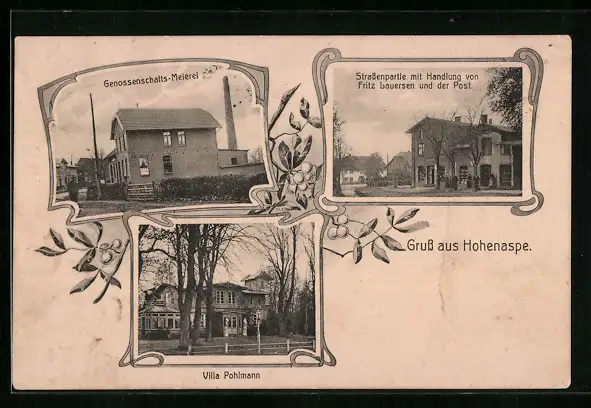 Genossenschafts-Meierei
Straßenpartie mit Handlung von
Fritz Lauersen und der Post.
Gruß aus Hohenaspe.
Villa Pohlmann